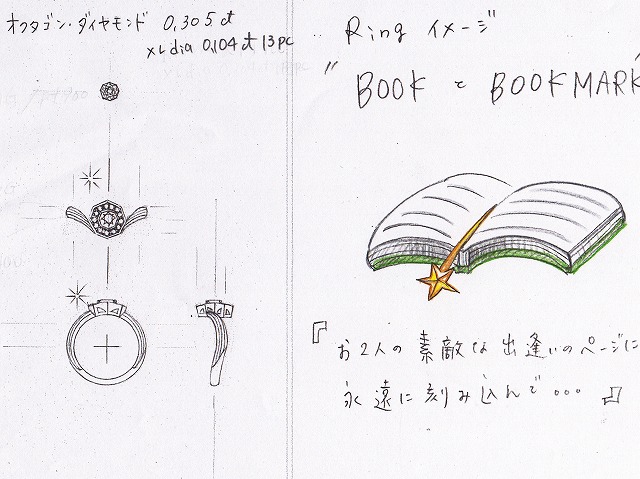 オクタゴン・ダイヤモンド 0,305ct
メレdia 0,104ct 13pc
Ring イメージ
"BOOK と BOOKMARK"
『お2人の素敵な出逢いのページに
永遠に刻み込んで…』